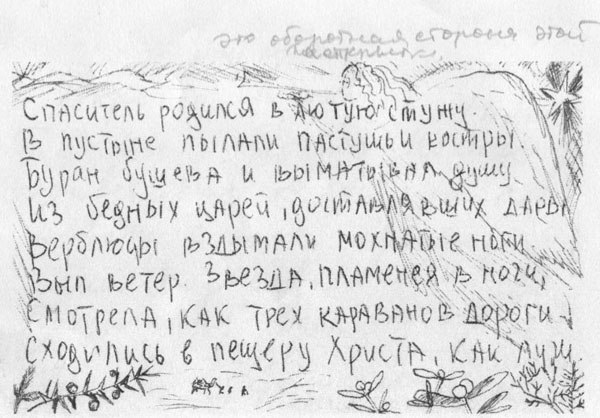 это оборотная сторона этой
открытки
Спаситель родился в лютую стужу.
В пустыне пылали пастушьи костры.
Буран бушева и выматывал душу
Из бедных царей, доставлявших дары
Верблюды вздымали мохнатые ноги.
Выл ветер. Звезда, пламенея в ночи,
Смотрела, как трех караванов дороги
Сходились в пещеру Христа, как лучи.